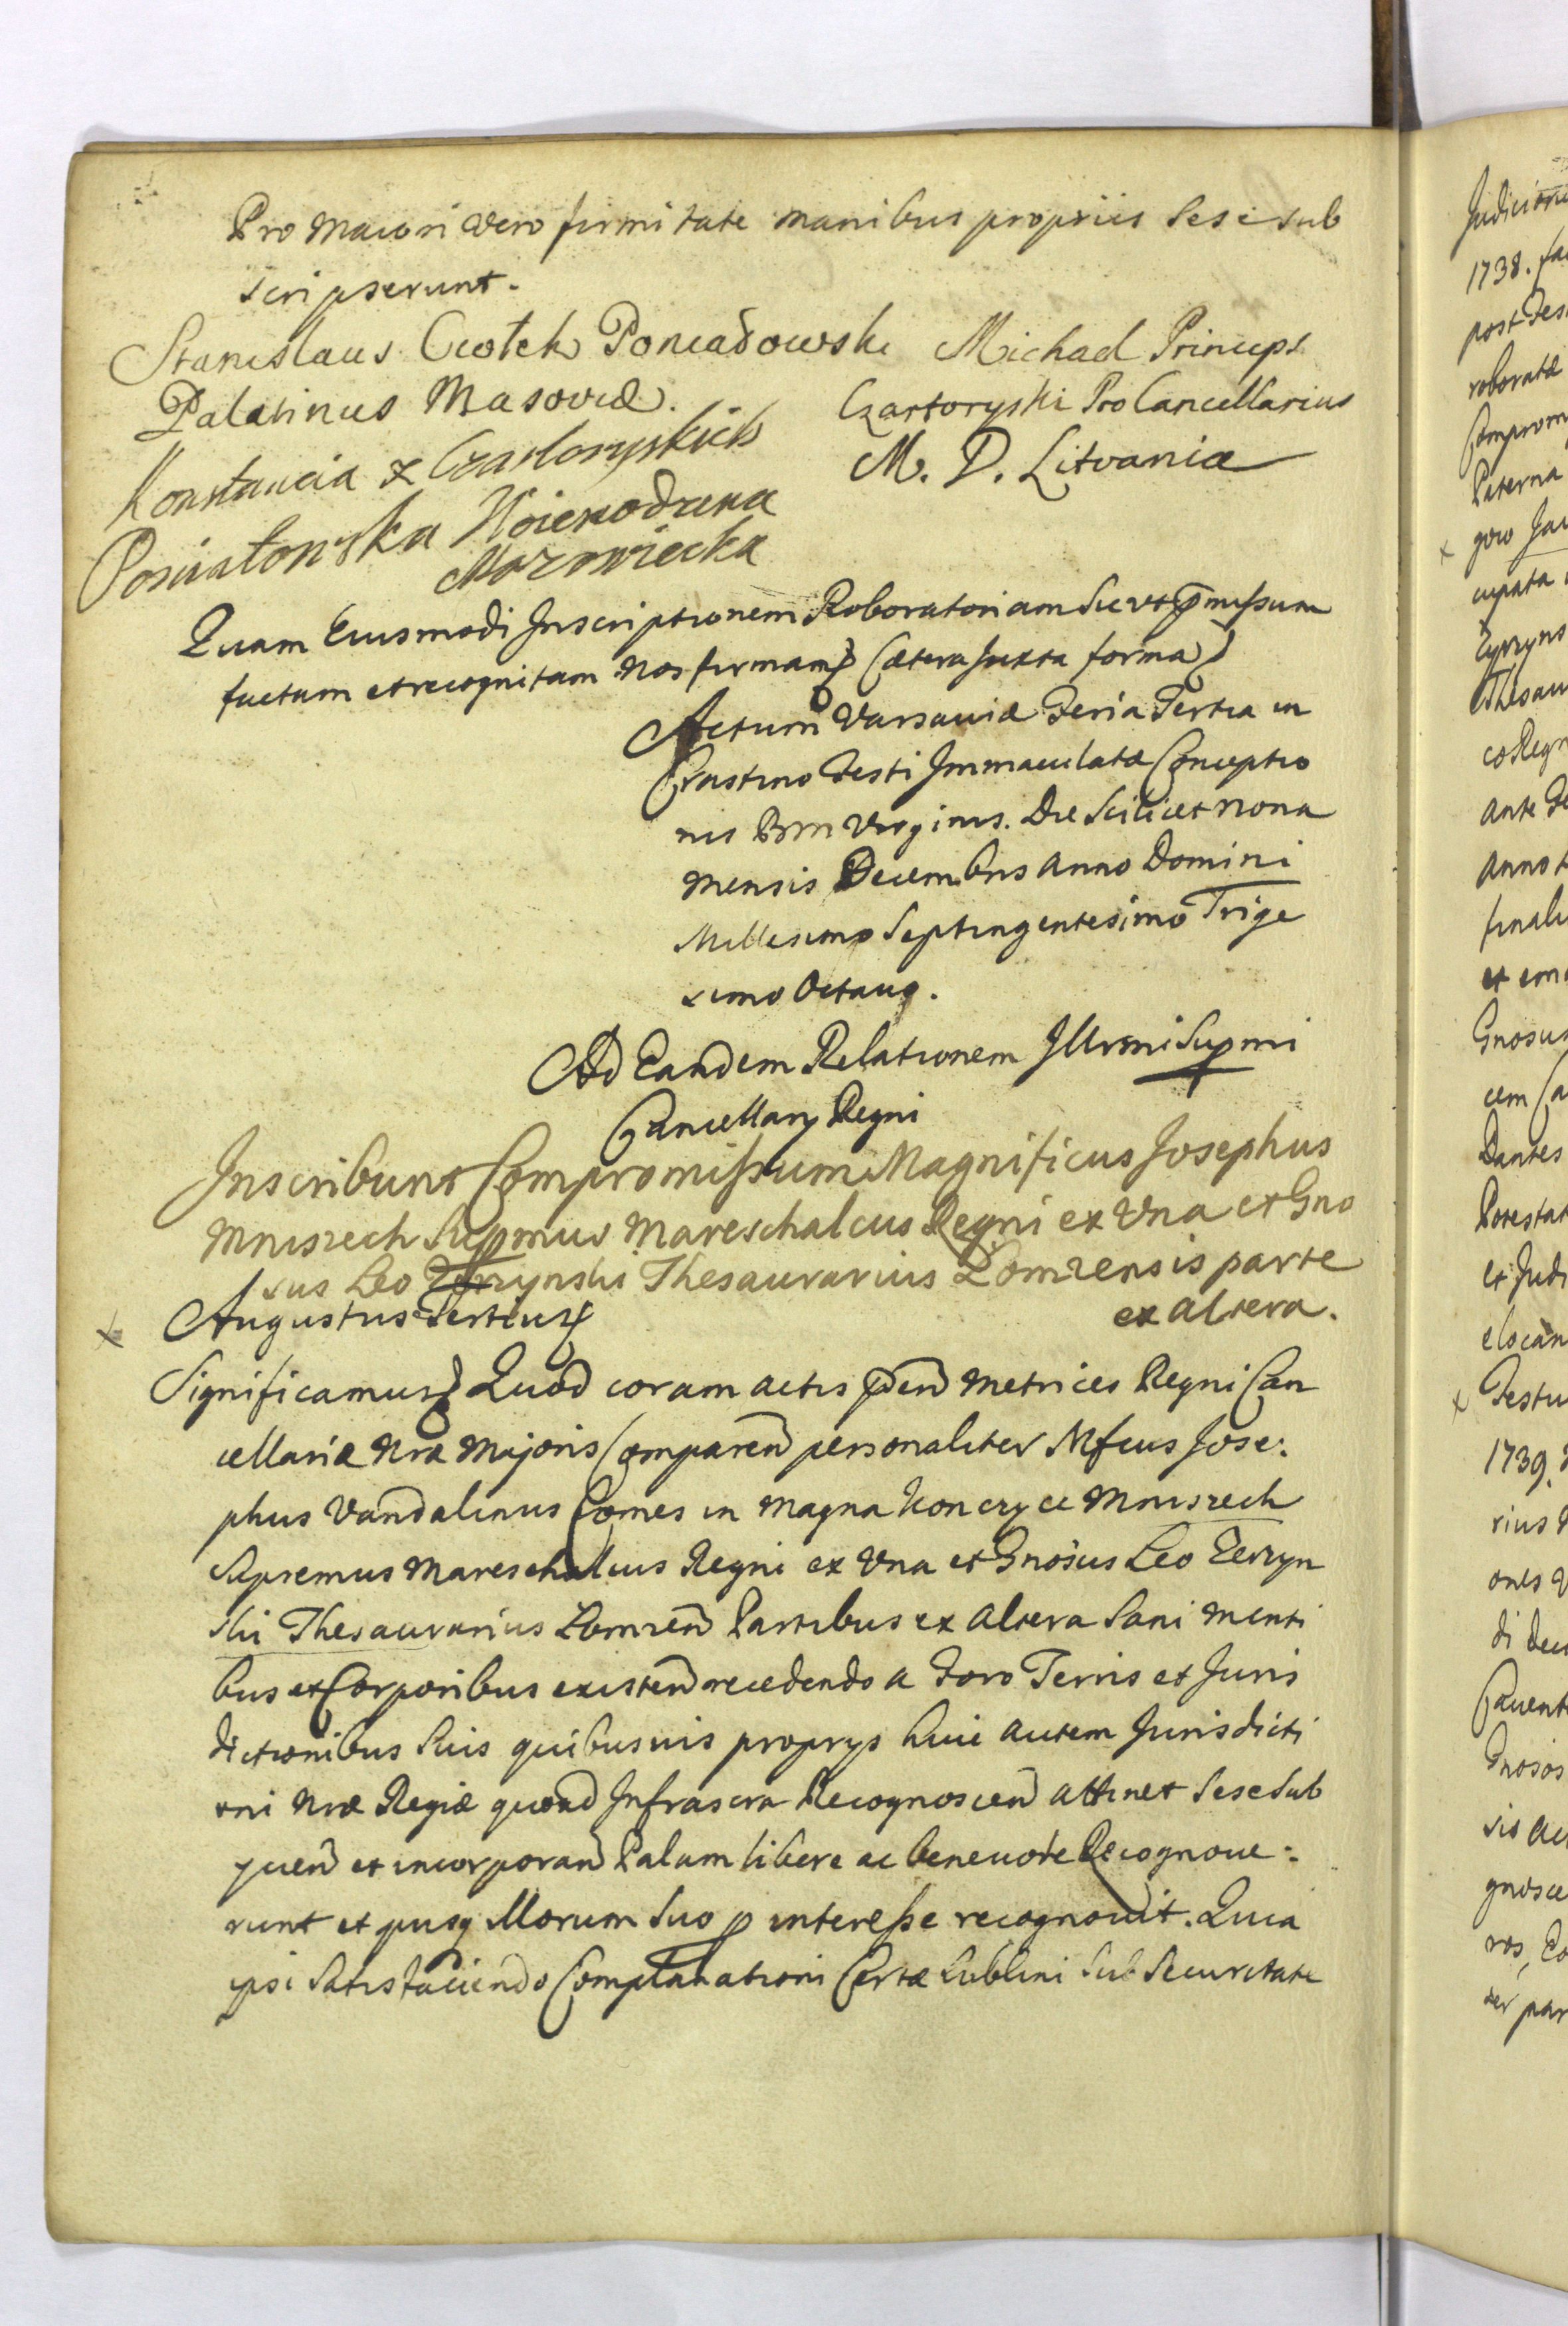 Pro Maiori vero firmitate manibus propriis sese sub
scripserunt.
Stanislaus Ciołek Poniatowski
Palatinus Masoviæ.
Michael Princeps
Czartoryski ProCancellarius
M. D. Litvaniæ
Konstancia z Czartoryskich
Poniatowska Woiewodzina
Mazowiecka
Quam Eiusmodi Inscriptionem Roboratoriam Sic ut pmissum
factam et recognitam Nos firmam (cætera juxta forma)
Actum Varsaviæ Feria Tertia in
Crastino Festi Immaculatæ Conceptio
nis Bmæ Virginis. Die Scilicet nona
Mensis Decembris Anno Domini
Millesimo Septingentesimo Trige
simo Octavo.
Ad Eandem Relationem Illrmi Supmi
Cancellarij Regni
Inscribunt Compromissum Magnificus Josephus
Mniszech Supmus Mareschalcus Regni ex Una et Gno
sus Leo Thesaurarius Łomzensis parte
ex altera.
Augustus Tertius
Significamus Quod coram actis pñ Metrices Regni Can
cellariæ Nræ Majoris Comparen personaliter Mfcus Jose:
phus Vandalinus Comes in Magna Konczyce Mniszech
Supremus Mareschalcus Regni ex Una et Gnosus Leo
ski Thesaurarius Łomzen Partibus ex altera Sani Menti
bus et Corporibus existen recedendo a Foro Terris et Juris
dictionibus Suis quibusvis proprys huic autem Jurisdicti
oni Nræ Regiæ quoad Infrascra Recognoscen attinet Sese Sub
ycien et incorporan Palam libere ac benevole Recognove:
runt et Illorum Suo p interesse recognovit. Quia
ipsi Satisfaciendo Complanationi Certæ Lublini Sub Securitate
Judicior
1738. fa
post Fes
roboratæ
Comprom
Paterna
Thesau
co Regn
ante Fe
Anno
finali
et
Gnosus
cem Ca
Dantes
Potestat
et Judi
elocan
Festu
1739.
rius
ones
di
Cavent
Gnosos
sis
gnosce
ros,
ter par